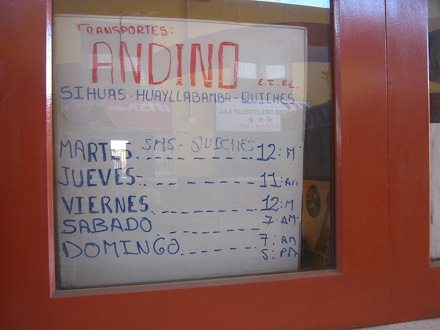 TRANSPORTES:
ANDINO
E.I.R.L.
SIHUAS - HUAYLLABAMBA - QUICHES
MARTES SHS - QUICHES 12:M
JUEVES 11:AM
VIERNES 12:M
SABADO 7 AM
DOMINGO 7:AM
5:PM